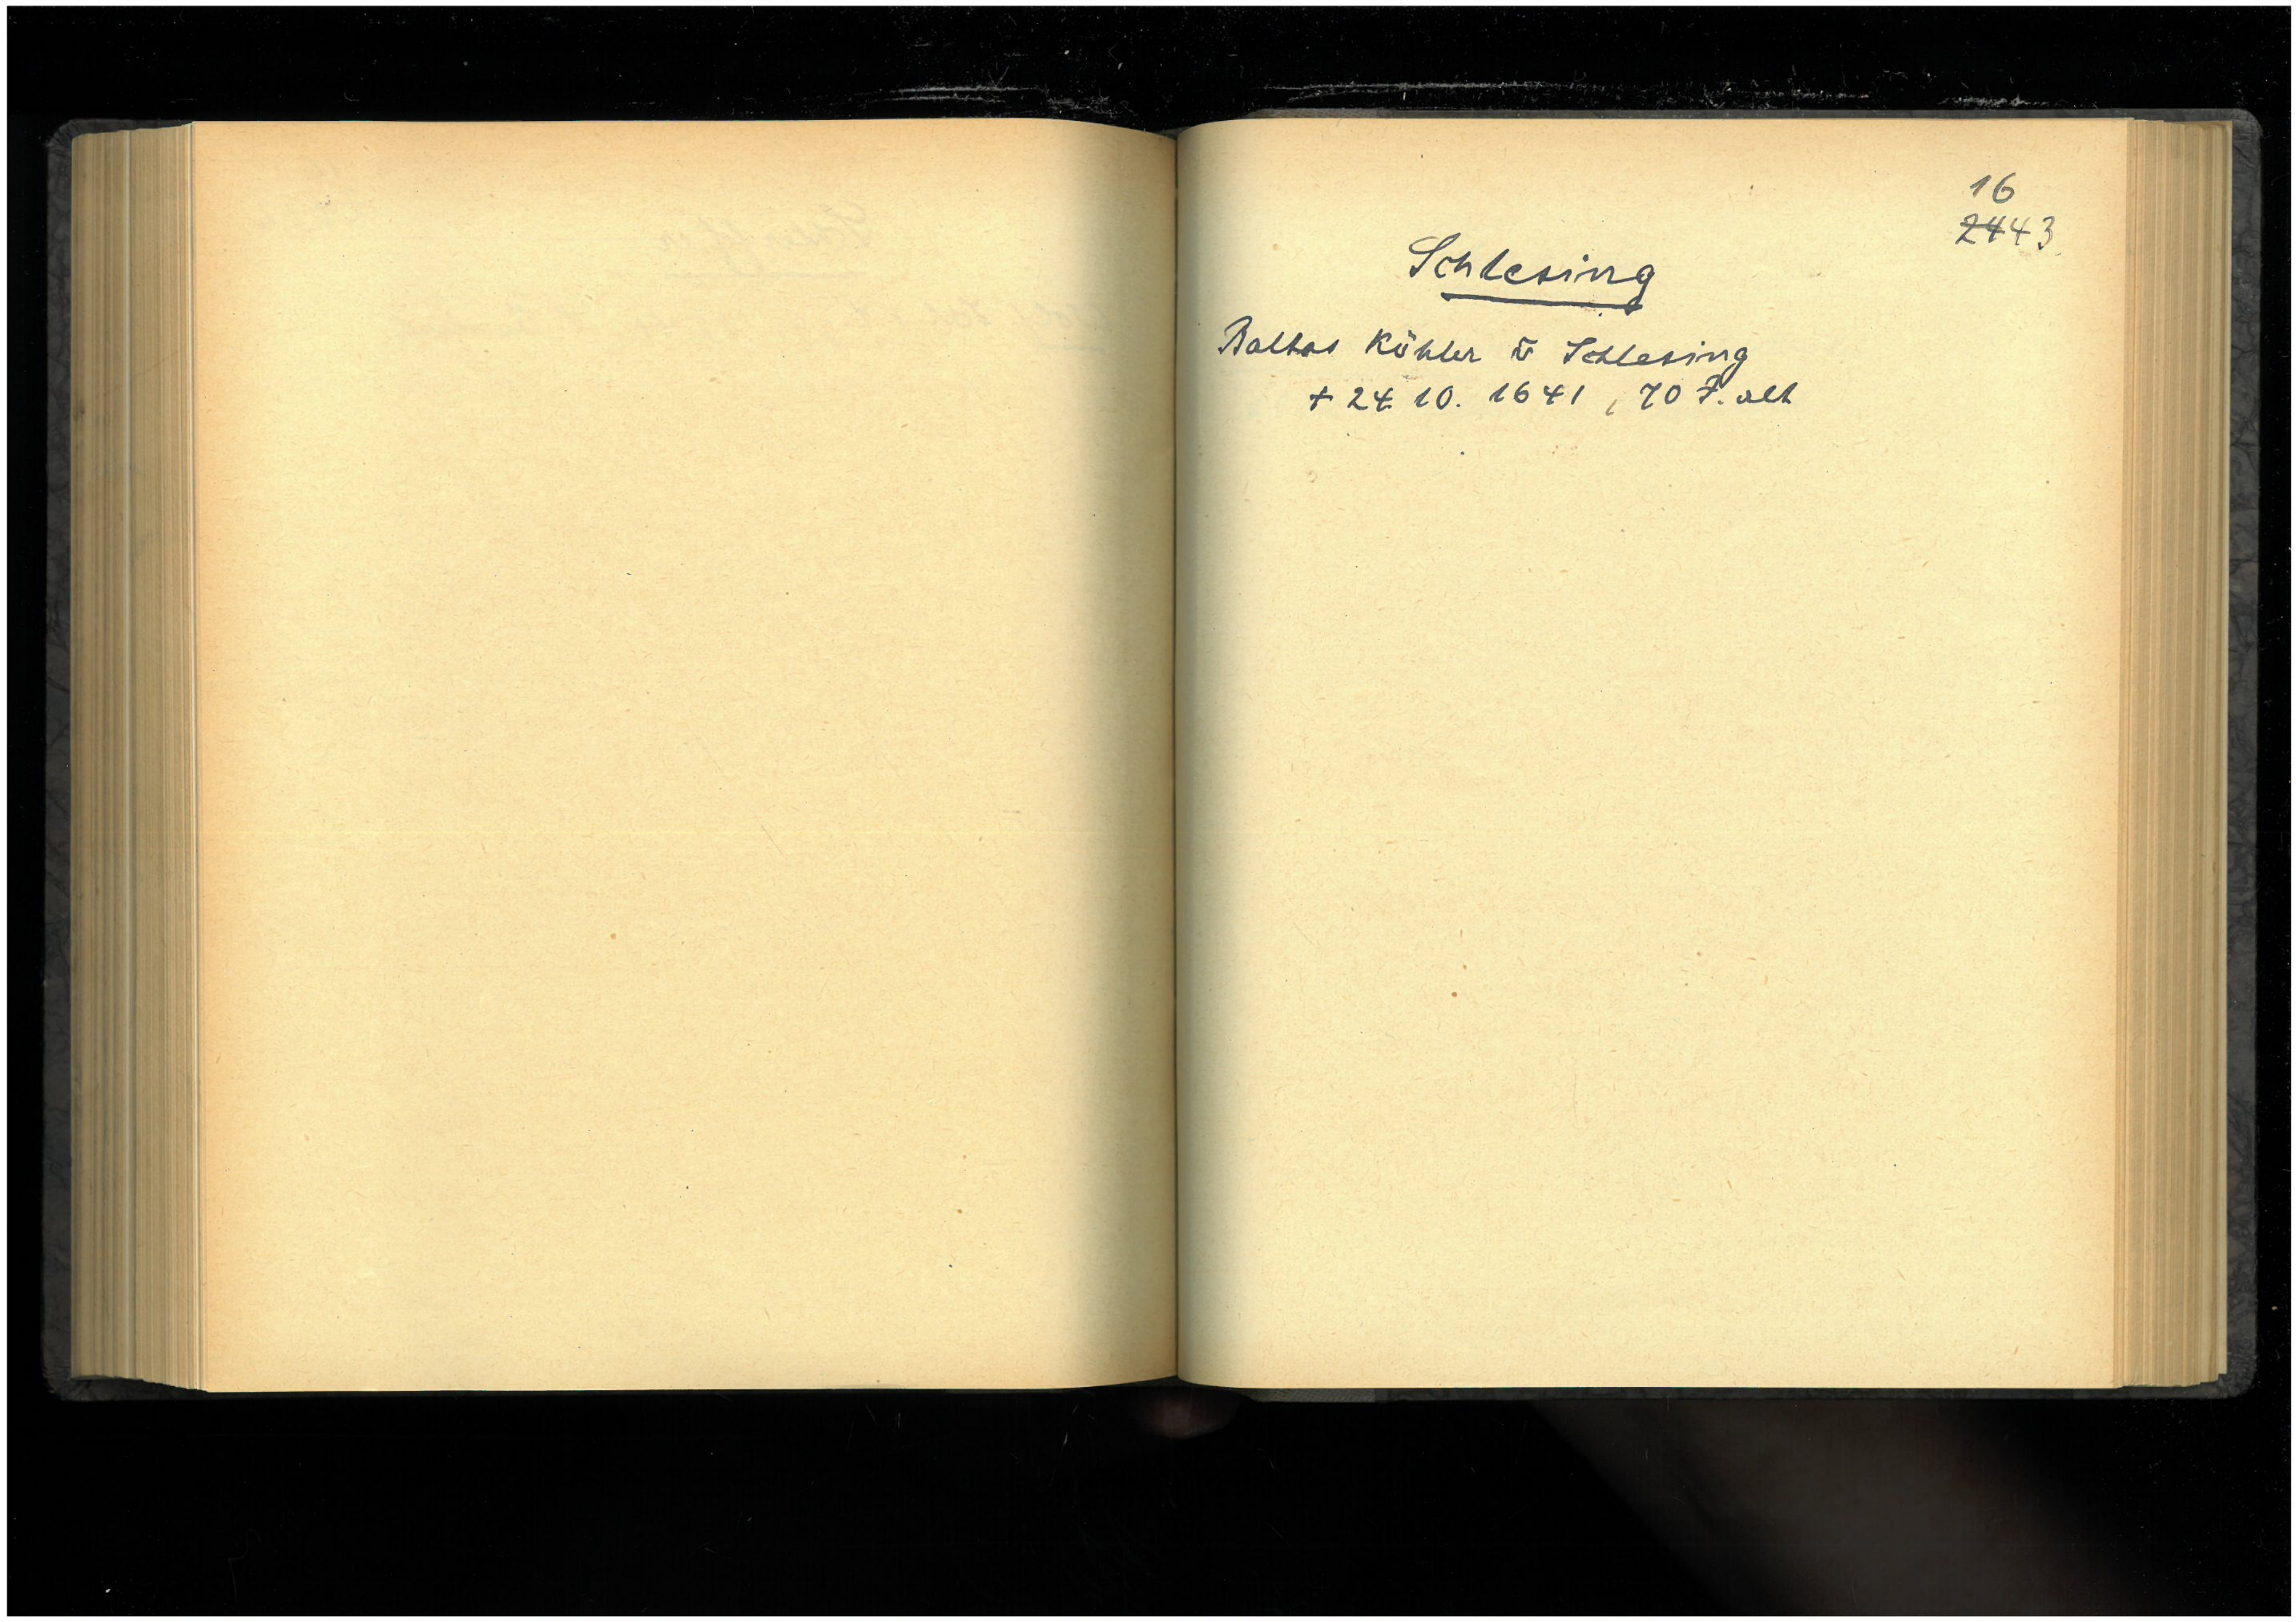 16
2443
Schlesing
Baltas Köhler v Schlesing
+ 24. 10. 1641, 70 J. alt